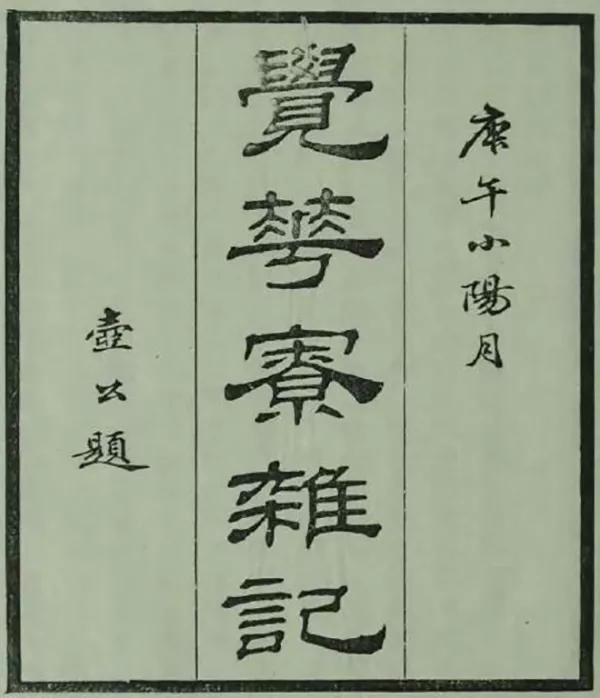 庚午小陽月
覺蕐寮雜記
壺公題